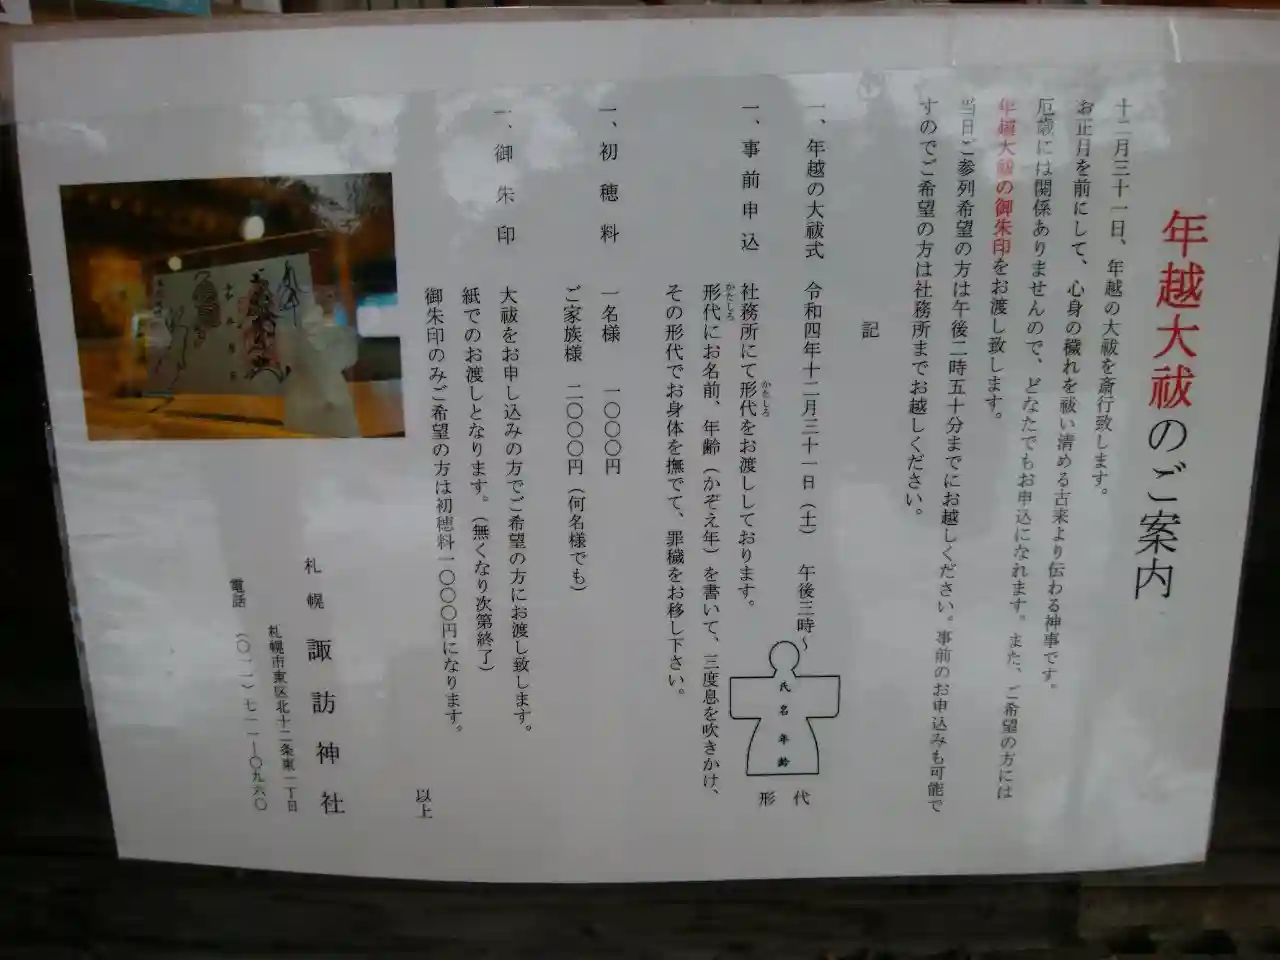 年越大祓のご案内
十二月三十一日、年越の大祓を斎行致します。
お正月を前にして、心身の穢れを祓い清める古来より伝わる神事です。
厄歳には関係ありませんので、どなたでもお申込になれます。また、ご希望の方には
年越大祓の御朱印をお渡し致します。
当日ご参列希望の方は午後二時五十分までにお越しください。事前のお申込みも可能で
すのでご希望の方は社務所までお越しください。
記
一、年越の大祓式 令和四年十二月三十一日（土） 午後三時～
一、事前申込 社務所にて形代をお渡ししております。
かたしろ
形代にお名前、年齢（かぞえ年）を書いて、三度息を吹きかけ、
かたしろ
その形代でお身体を撫でて、罪穢をお移し下さい。
氏名年齢
形代
一、初穂料 一名様 一〇〇〇円
ご家族様 二〇〇〇円（何名様でも）
一、御朱印 大祓をお申し込みの方でご希望の方にお渡し致します。
紙でのお渡しとなります。（無くなり次第終了）
御朱印のみご希望の方は初穂料一〇〇〇円になります。
以上
札幌 諏訪神社
札幌市東区北十二条東一丁目
電話 （〇一一）七一一―〇九六〇